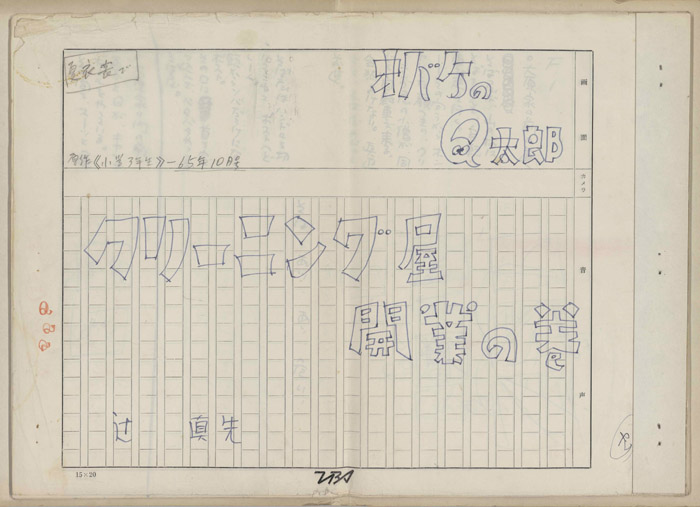 オバケの
Q太郎
原作《小学3年生》—65年10月号
クリーニング屋
開業の巻
辻 真先
画面
カメラ
音
声
15×20
TBS